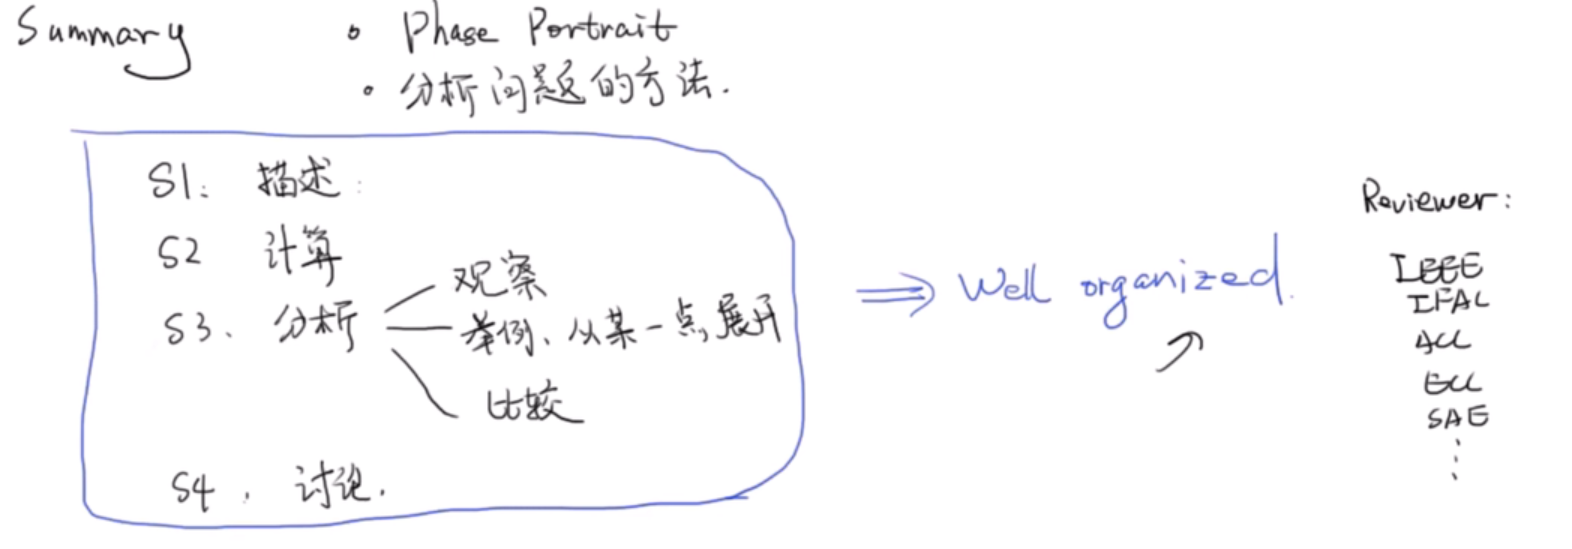 Summary
• Phase Portrait
• 分析问题的方法.
S1. 描述:
S2 计算
S3. 分析
观察
举例、从某一点展开
比较
S4. 讨论.
⇒ Well organized.
Reviewer:
IEEE
IFAC
ACC
ECC
SAE
⋮